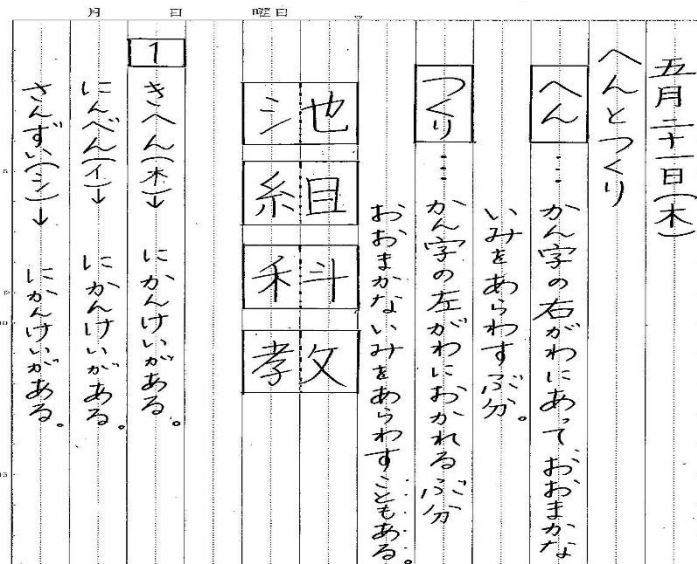 月　日　曜日
五月二十一日(木)
へんとつくり
へん…かん字の右がわにあって、おおまかな
いみをあらわすぶ分。
つくり…かん字の左がわにおかれるぶ分
おおまかないみをあらわすこともある。
池
組
科
教
1 きへん(木)→にかんけいがある。
にんべん(イ)→にかんけいがある。
さんずい(シ)→にかんけいがある。